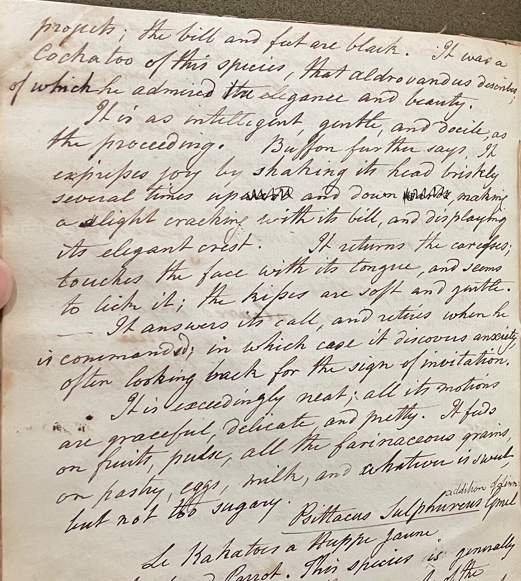 projects; the bill and feet are black. It was a
Cockatoo of this species, that aldrovandus describes,
of which he admired the elegance and beauty.
It is as intelligent, gentle, and docile, as
the proceeding. Buffon further says, It
expresses joy by shaking its head briskly
several times up and down, making
a slight cracking with its bill, and displaying
its elegant crest. It returns the caresses;
touches the face with its tongue, and seems
to lick it; the kisses are soft and gentle.
— It answers its call, and retires when he
is commanded; in which case it discovers anxiety,
often looking back for the sign of invitation.
It is exceedingly neat; all its motions
are graceful, delicate, and pretty. It feeds
on fruits, pulse, all the farinaceous grains,
on pastry, eggs, milk, and whatever is sweet
but not too sugary.
addition of
Psittacus Sulphureus Gmel
Le Kakatoes a Huppe jaune.
Parrot. This species is generally
the